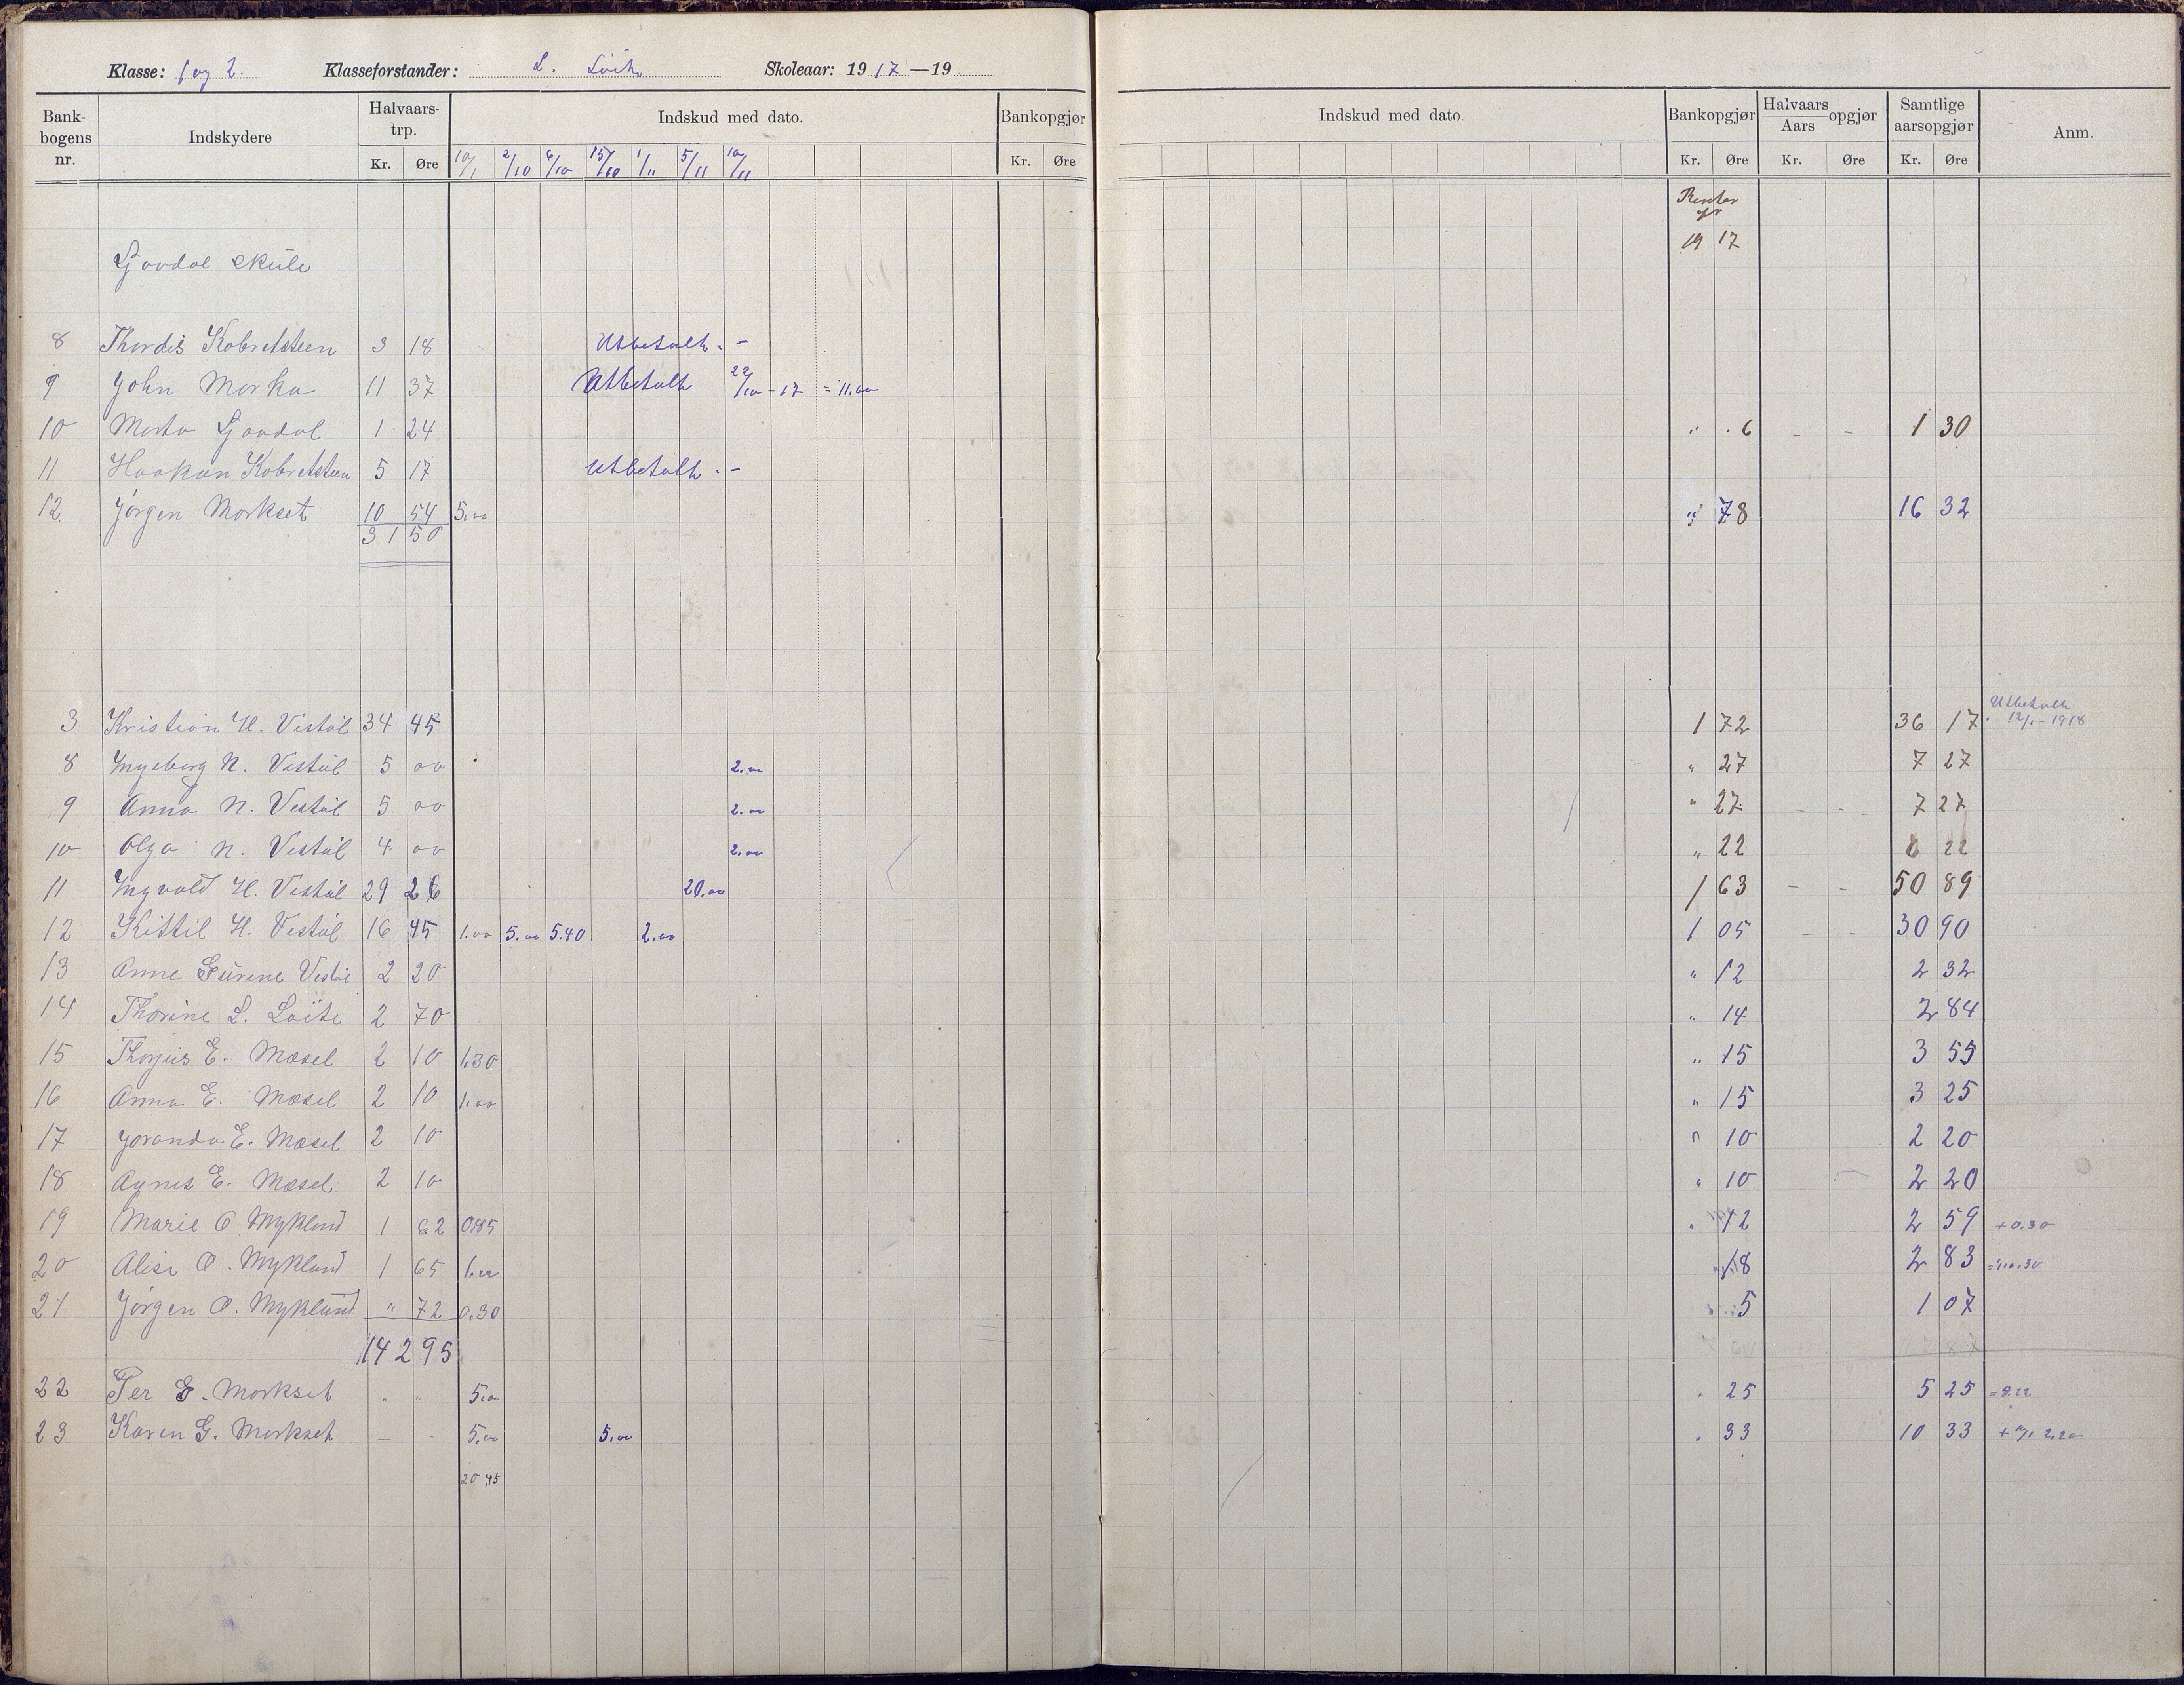 Klasse: 1 og 2. Klasseforstander: L. Løite Skoleaar: 1917—19
Bank-bogens nr. Indskydere Halvaars-trp. Kr. Øre Indskud med dato. Bankopgjør Kr. Øre Indskud med dato. Bankopgjør Kr. Øre Halvaars Aars opgjør Kr. Øre Samtlige aarsopgjør Kr. Øre Anm.
10/1 2/10 6/10 15/10 1/11 5/11 10/11
Renter
for
19 17
Ljovdal skule
8 Thordis Kobretsteen 3 18 Utbetalt. -
9 John Morka 11 37 Utbetalt 22/10 - 17 = 11.00
10 Marta Ljovdal 1 24 " . 6 - - 1 30
11 Haakon Kobretsteen 5 17 Utbetalt. -
12. Jørgen Morkset 10 54 5.00 " 78 16 32
31 50
3 Kristian H. Vestøl 34 45 1 72 36 17 Utbetalt
12/1 - 1918
8 Ingeborg N. Vestøl 5 00 2.00 " 27 7 27
9 Anna N. Vestøl 5 00 2.00 " 27 - - 7 27
10 Olga N. Vestøl 4 00 2.00 " 22 6 22
11 Ingvald H. Vestøl 29 26 20.00 1 63 - - 50 89
12 Kittil H. Vestøl 16 45 1.00 5.00 5.40 2.00 1 05 - - 30 90
13 Anne Gurine Vestøl 2 20 " 12 2 32
14 Thorine L. Løite 2 70 " 14 2 84
15 Thorjus E. Mæsel 2 10 1.30 " 15 3 55
16 Anna E. Mæsel 2 10 1.00 " 15 3 25
17 Joranda E. Mæsel 2 10 " 10 2 20
18 Agnes E. Mæsel 2 10 " 10 2 20
19 Marie O Myklund 1 62 0.85 " 12 2 59 +0.30
20 Alise O. Myklund 1 65 1.00 18 2 83
21 Jørgen O. Myklund " 72 0.30 5 1 07
142 95
22 Per G. Morkset " " 5.00 . 25 5 25
23 Karen G. Morkset - - 5.00 5.00 . 33 10 33
20,45